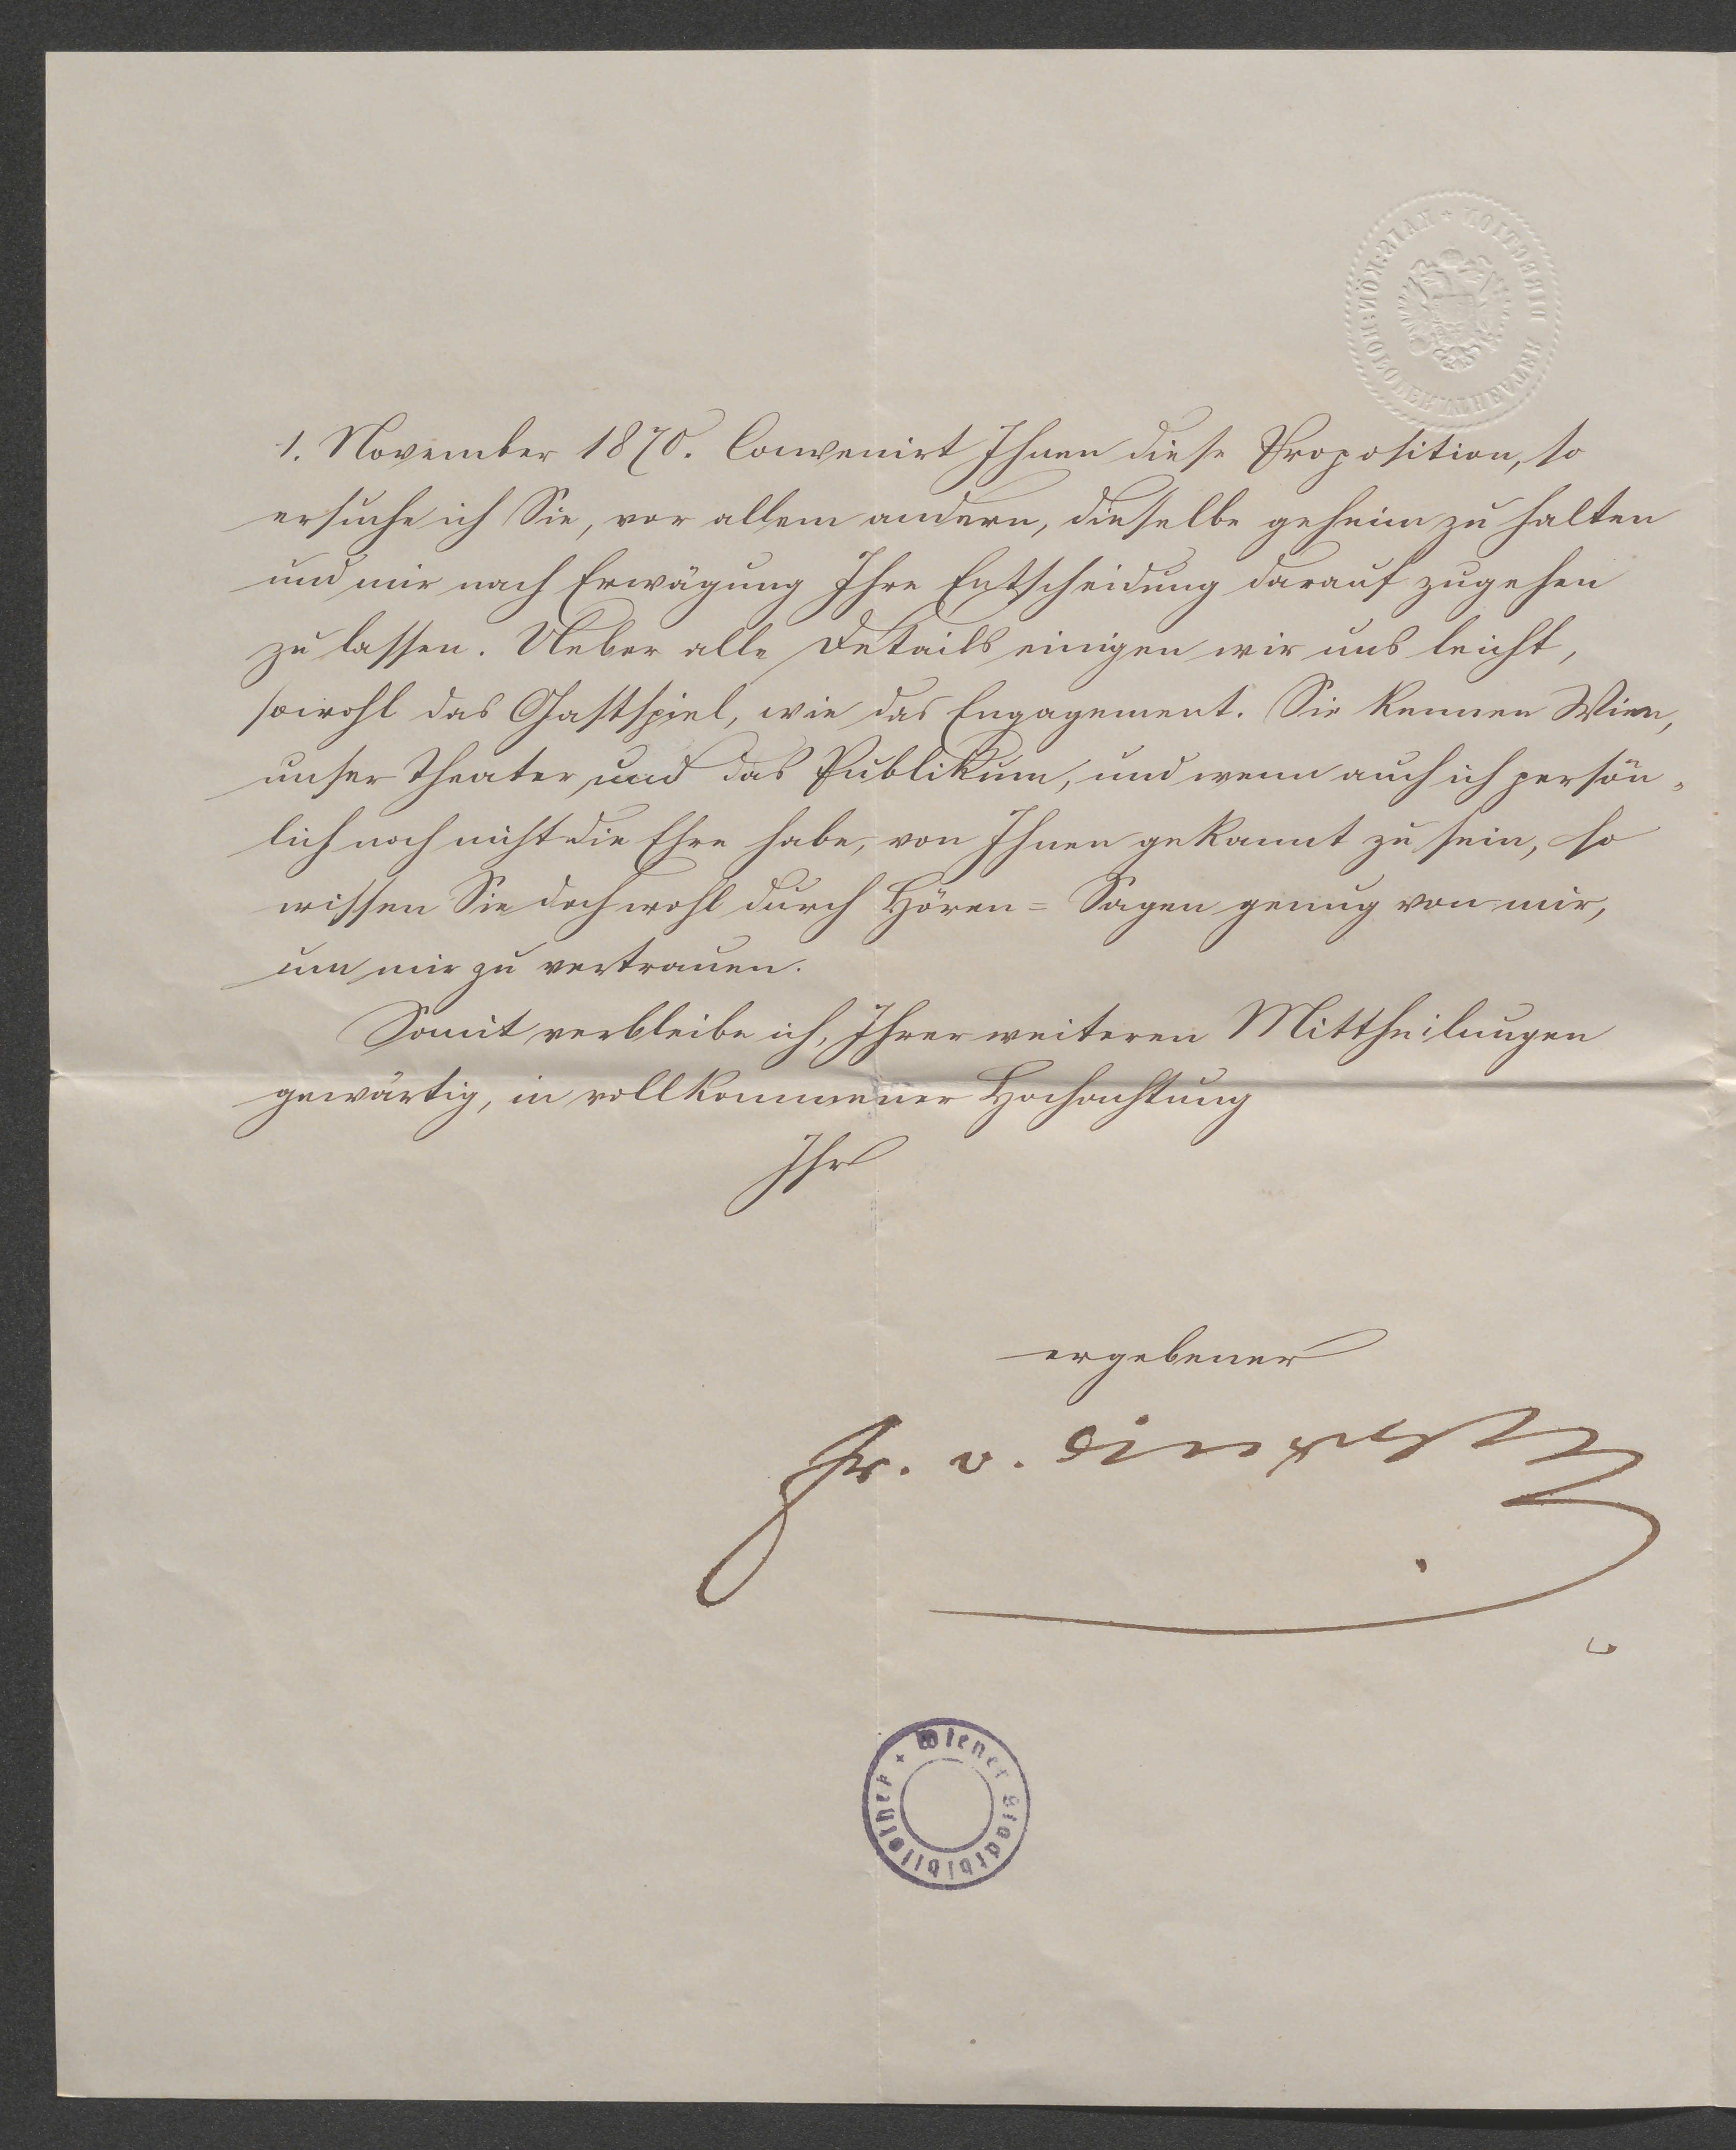 DIRECTION * KAIS:KÖN:HOFOPERNTHEATER
1. November 1870. Convenirt Ihnen diese Proposition, so
ersuche ich Sie, vor allem andern, dieselbe geheim zu halten
und mir nach Erwägung Ihre Entscheidung darauf zugehen
zu lassen. Ueber alle Details einigen wir uns leicht,
sowohl das Gastspiel, wie das Engagement. Sie kennen Wien,
unser Theater, und das Publikum, und wenn auch ich persön-
lich noch nicht die Ehre habe, von Ihnen gekannt zu sein, so
wissen Sie doch wohl durch Hören = Sagen genug von mir,
um mir zu vertrauen.
Somit verbleibe ich, Ihrer weiteren Mittheilungen
gewärtig, in vollkommener Hochachtung
Ihr
ergebener
Fr. v. Dingelstedt
Wiener Stadtbibliothek *